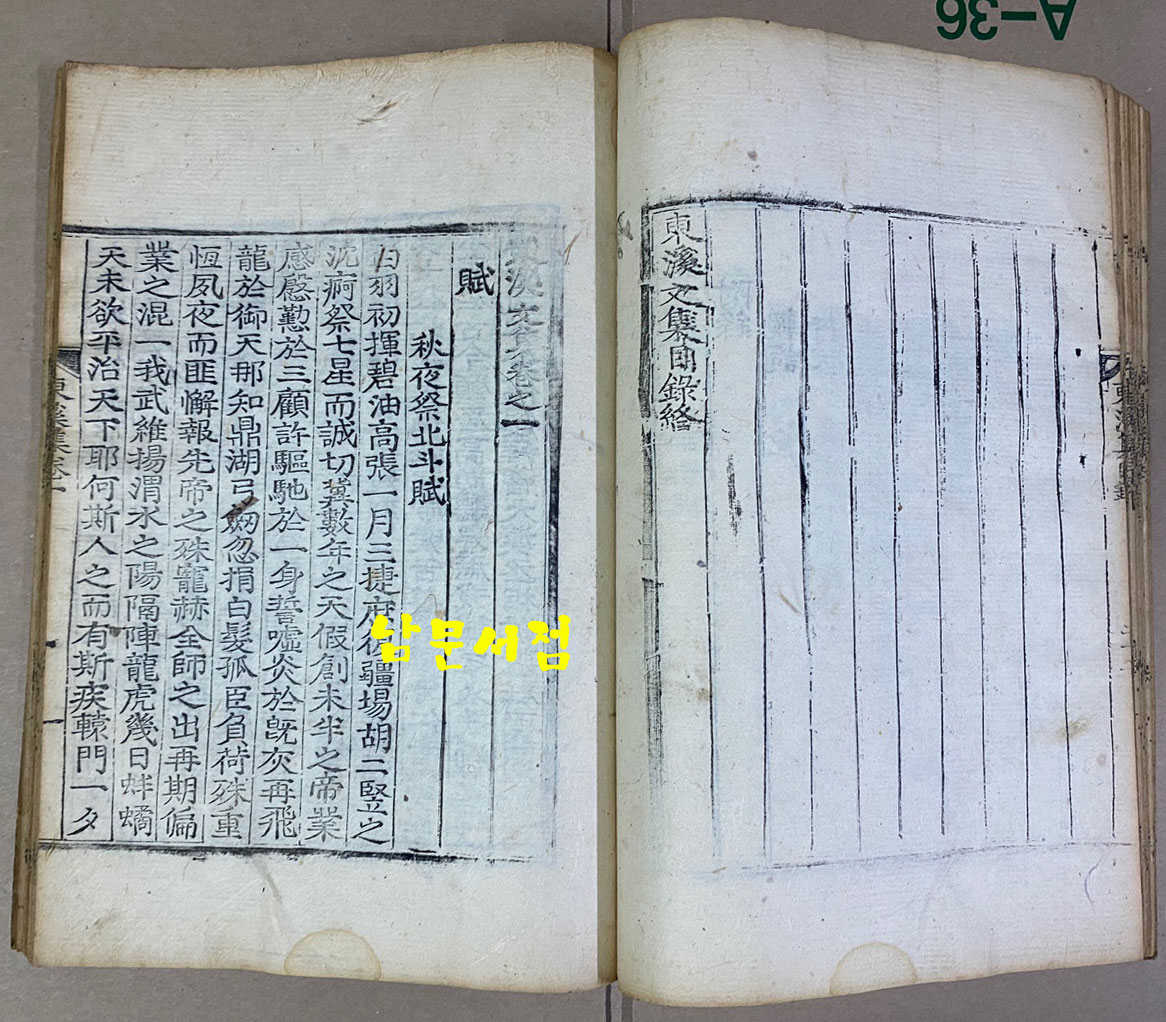 A-36
東溪文集目錄終
東溪集目錄
東溪文集卷之一
賦
秋夜祭北斗賦
白羽初揮碧油高張一月三捷府彼疆場胡二竪之
沈痾祭七星而誠切冀數年之天假創未半之帝業
感慇懃於三顧許驅馳於一身誓噓炎於旣灰再飛
龍於御天那知鼎湖弓劒忽捐白髮孤臣負荷殊重
恆夙夜而匪懈報先帝之殊寵赫全師之出再期偏
業之混一我武維揚渭水之陽隔陣龍虎幾日蚌蟜
天未欲平治天下耶何斯人之而有斯疾轅門一夕
東溪集卷一
一
남문서점